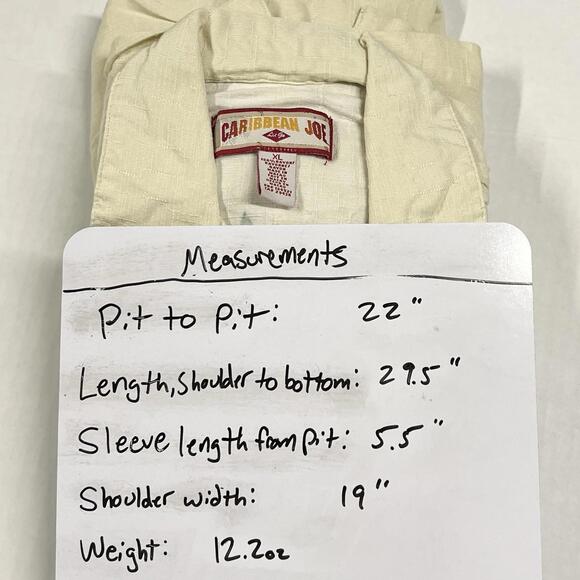 CARIBBEAN JOE
XL
Measurements
Pit to Pit: 22"
Length, Shoulder to bottom: 29.5"
Sleeve length from pit: 5.5"
Shoulder width: 19"
Weight: 12.2oz